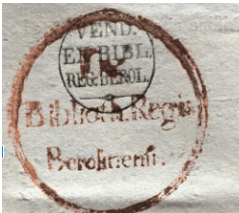 VEND.
EX BIBL.
REG. BEROL.
Biblioth. Regia
Berolinenſi.